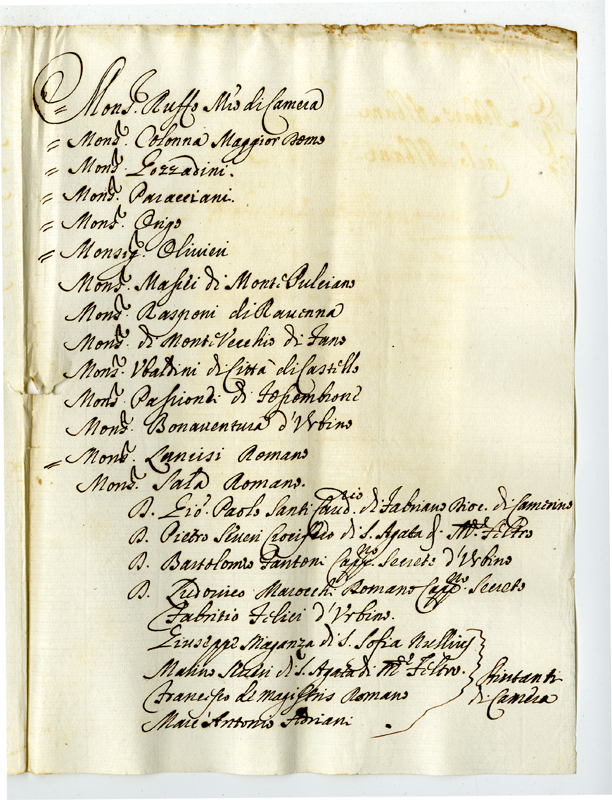 = Mons.r Ruffo M.ro di Camera
= Mons.r Colonna Maggior Domo
= Mons.r Gozzadini.
= Mons.r Paracciani.
= Mons.r Origo
= Monsig.r Olivieri
Mons.r Masili di Monte Pulciano
Mons.r Rasponi di Ravenna
Mons.r di Monte Vecchio di Fano
Mons.r Vbaldini di Città di Castello
Mons.r Passionei di Fossombrone
Mons.r Bonaventura d'Vrbino
= Mons.r Lancisi Romano
Mons.r Sala Romano.
D. Gio: Paolo Santi Caud.rio di Fabriano Dioc. di Camerino
D. Pietro Severi Crocifero di S. Agata di M.te Feltro
D. Bartolomeo Fantoni Capp.no Secreto d'Vrbino
D. Ludovico Marocchi Romano Capp.no Secreto
Fabritio Felici d'Vrbino.
Giuseppe Maganza di S. Sofia Nullius
Severi di S. Agata di M.te Feltro.
Francesco de Magistris Romano
Marc'Antonio Adriani
Aiutanti
di Camera